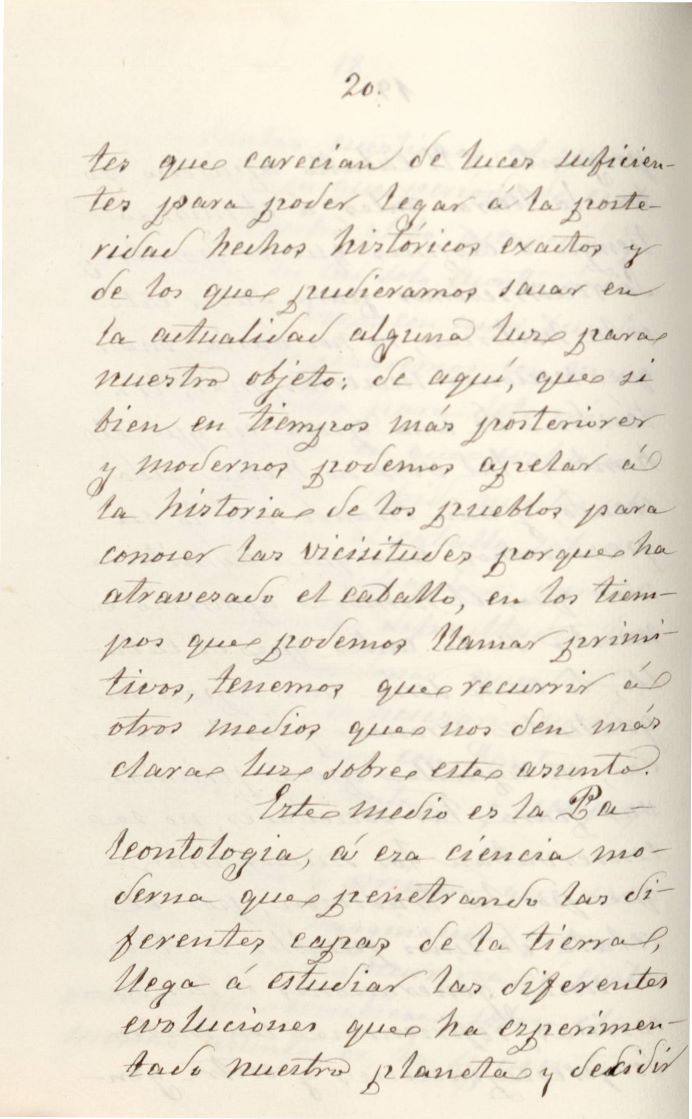 20.
tes que carecian de luces suficien-
tes para poder legar á la poste-
ridad hechos históricos exactos y
de los que pudieramos sacar en
la actualidad alguna luz para
nuestro objeto; de aquí, que si
bien en tiempos más posteriores
y modernos podemos apelar á
la historia de los pueblos para
conocer las vicisitudes porque ha
atravesado el caballo, en los tiem-
pos que podemos llamar primi-
tivos, tenemos que recurrir á
otros medios que nos den más
clara luz sobre este asunto.
Este medio es la Pa-
leontologia, á esa ciencia mo-
derna que penetrando las di-
ferentes capas de la tierra,
llega á estudiar las diferentes
evoluciones que ha esperimen-
tado nuestro planeta y decidir